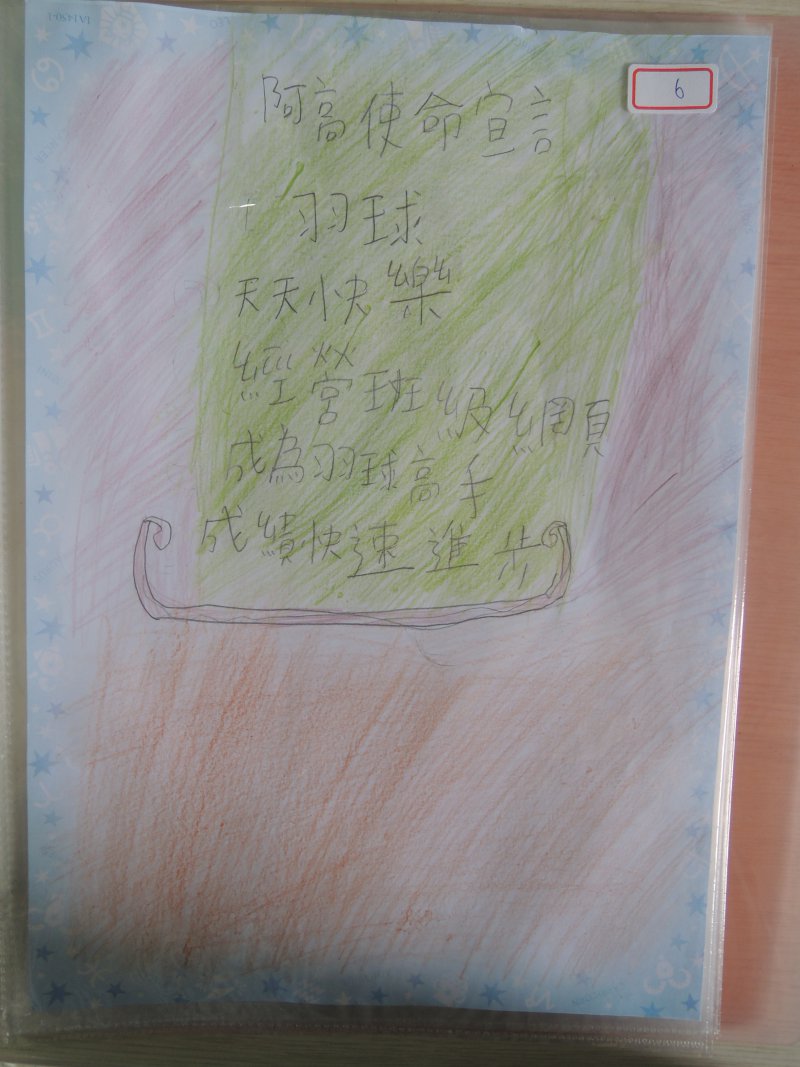 6
阿高使命宣言
羽球
天天快樂
經營班級網頁
成為羽球高手
成績快速進步